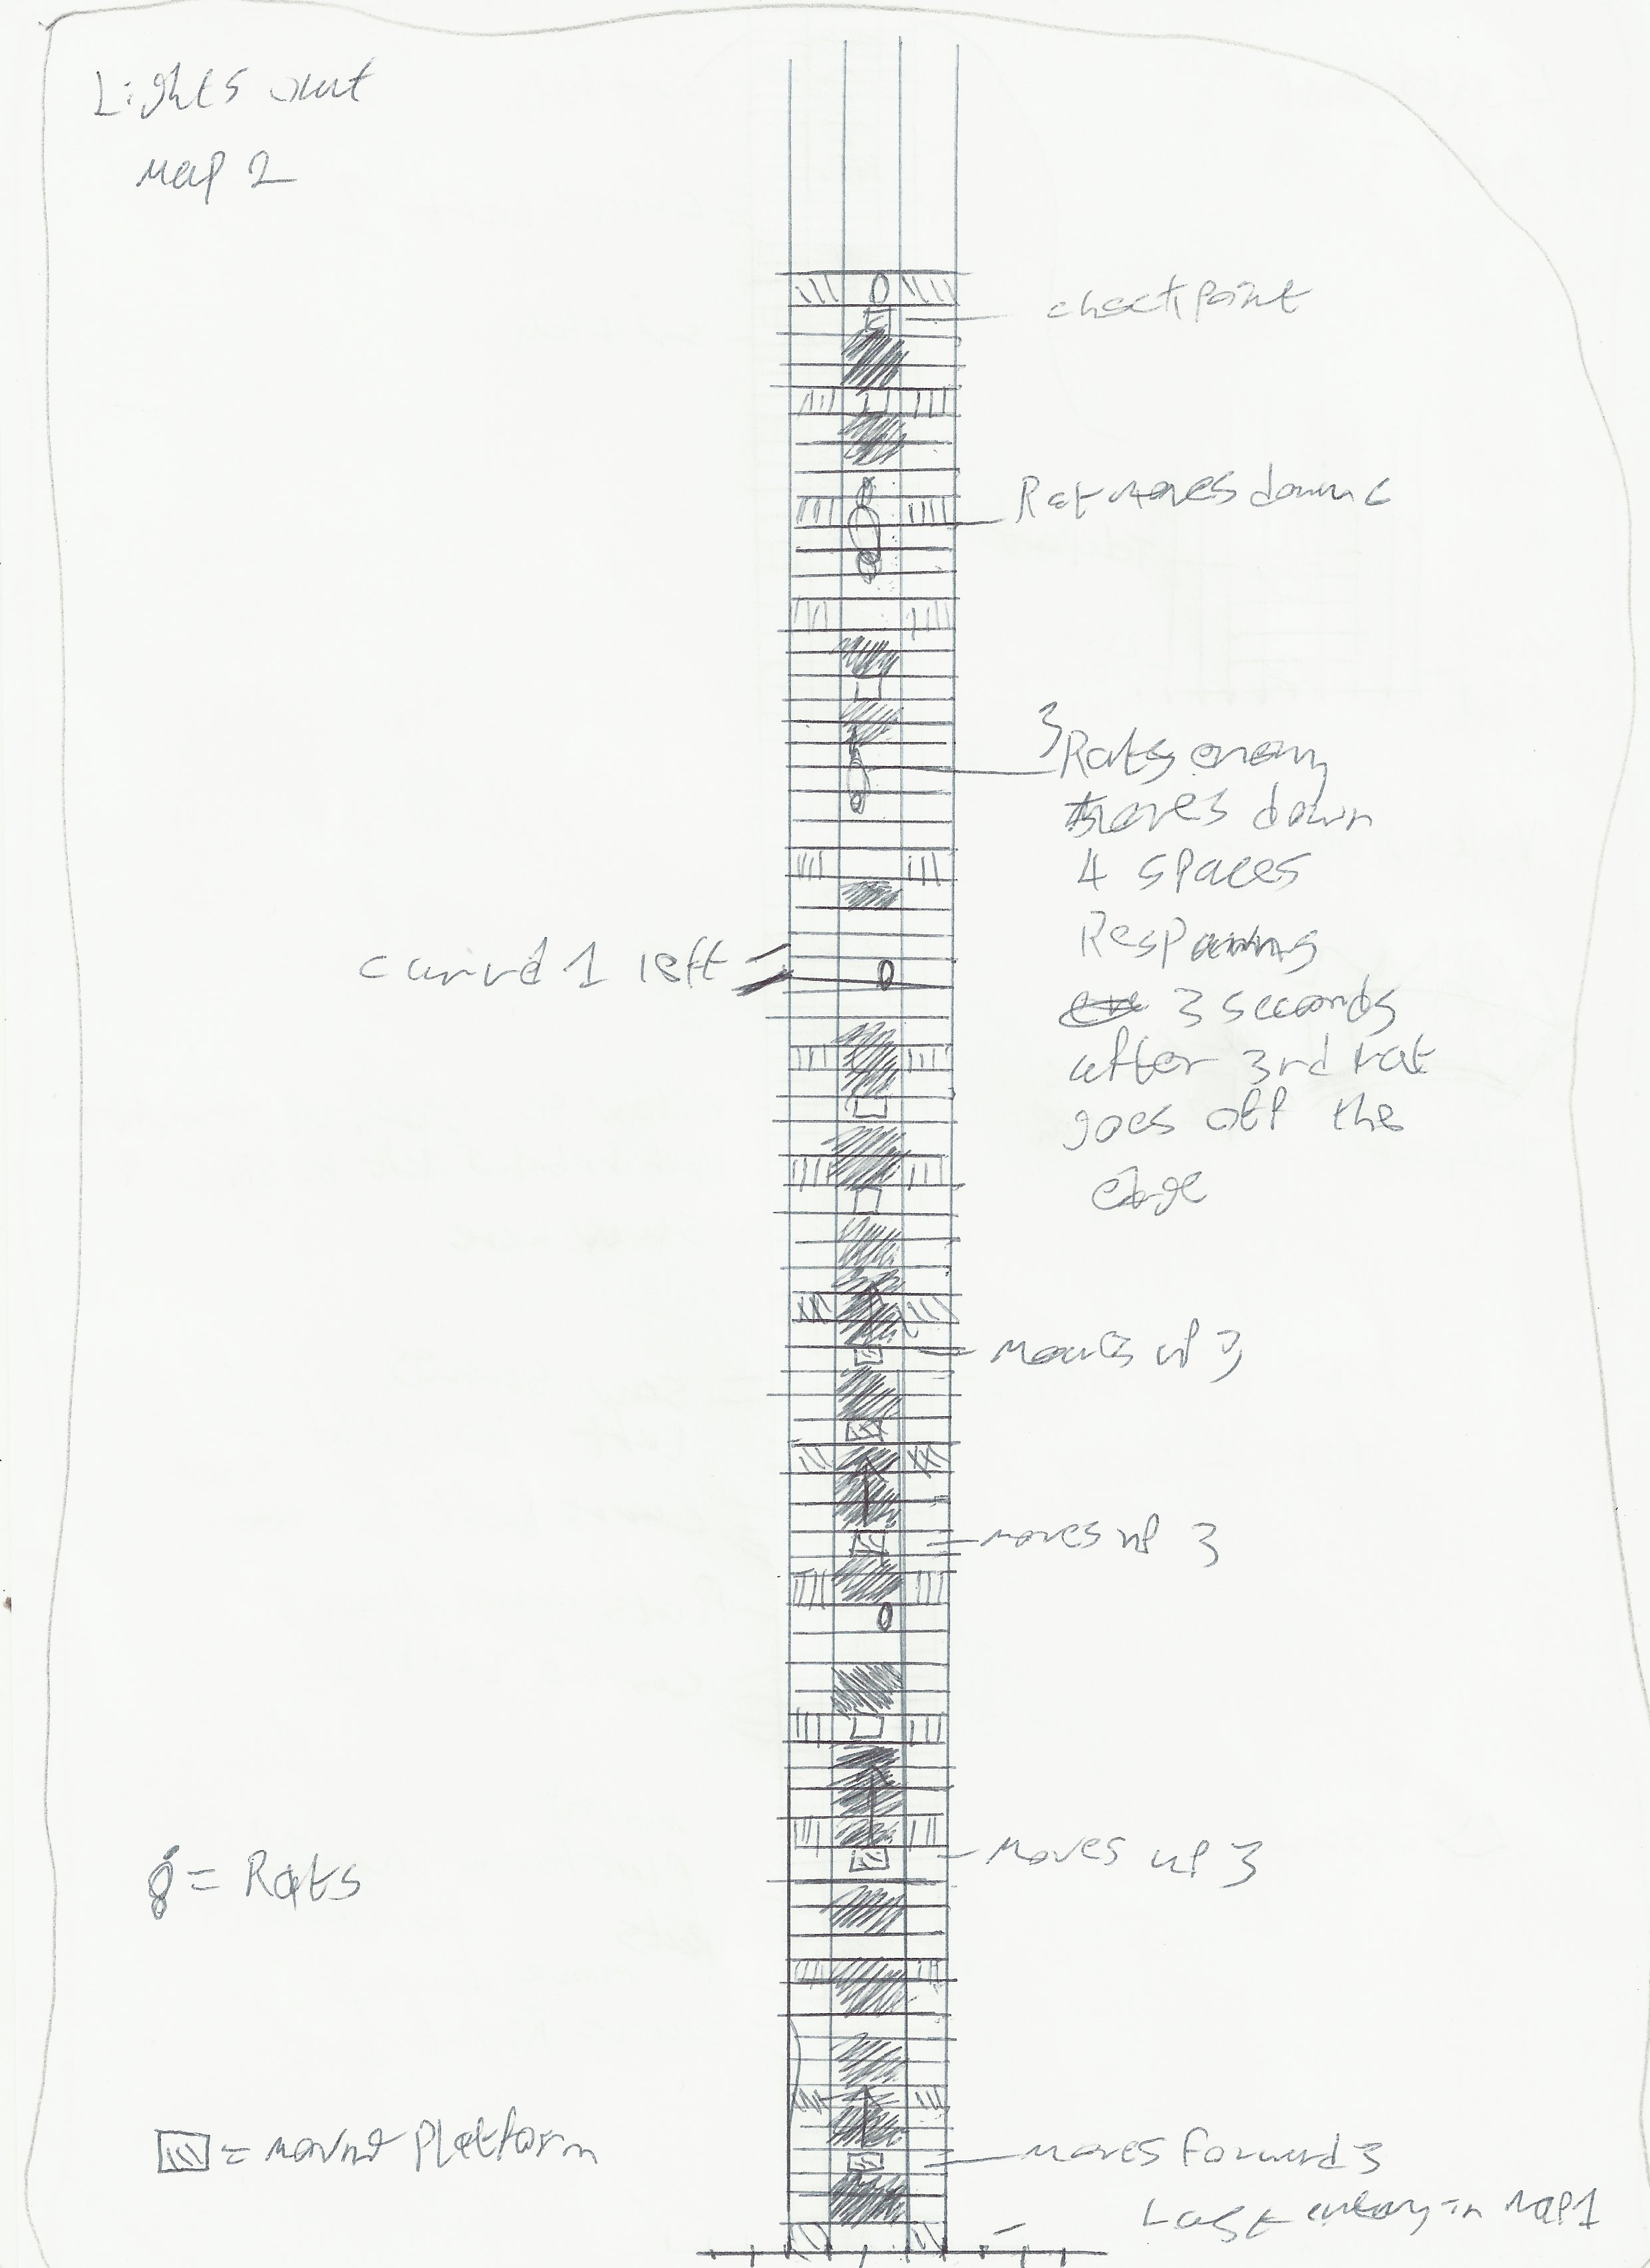 Lights out
Map 2
checkpoint
Rat moves down 6
3
Rats enemy
moves down
4 spaces
Respawning
3 seconds
after 3rd rat
goes off the
edge
1 left
moves up 3
moves up 3
moves up 3
= Rats
= moving Platform
moves forward 3
Last entry in Map 1